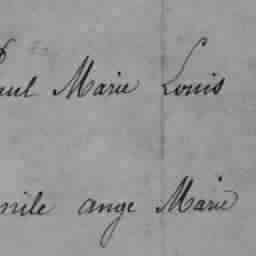 Paul Marie Louis
mile ange Marie